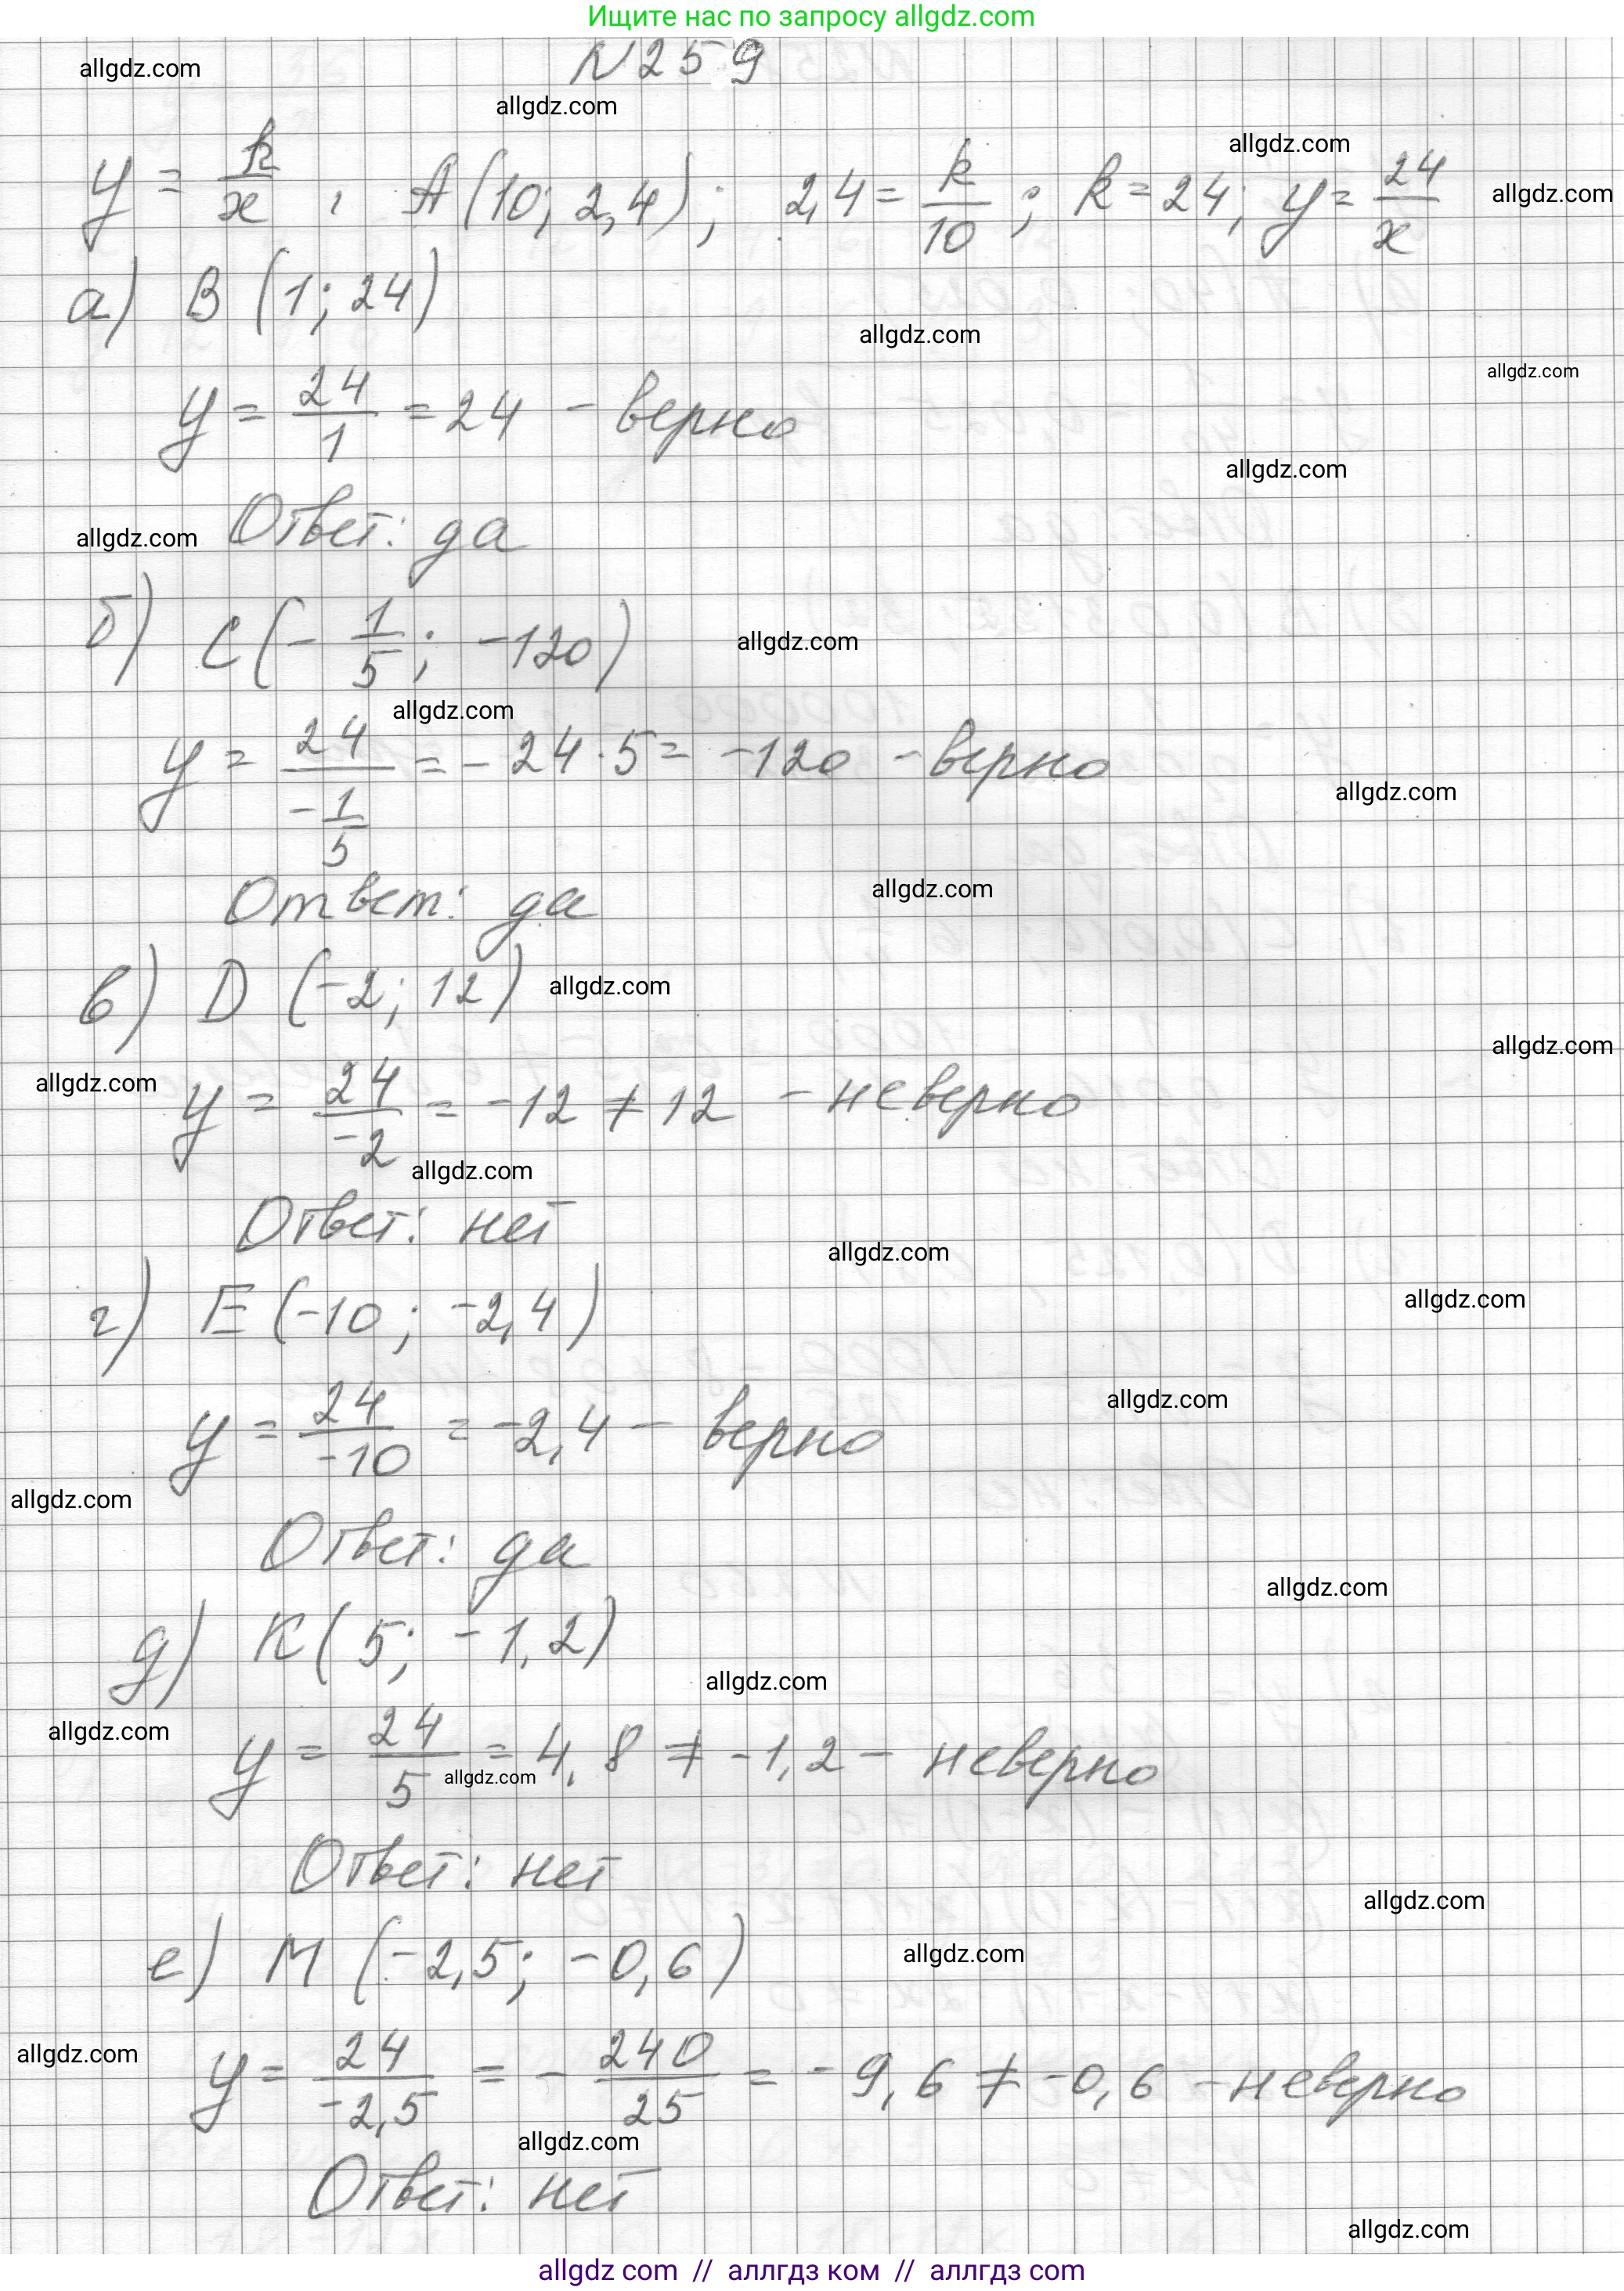 Ищите нас по запросу allgdz.com
N259
allgdz.com
allgdz.com
allgdz.com
y = k/x , A(10; 2,4); 2,4 = k/10 ; k = 24; y = 24/x
allgdz.com
а) B (1; 24)
allgdz.com
allgdz.com
y = 24/1 = 24 - верно
allgdz.com
Ответ: да
allgdz.com
б) C(- 1/5 ; -120)
allgdz.com
allgdz.com
y = 24/(-1/5) = - 24 · 5 = -120 - верно
allgdz.com
Ответ: да
allgdz.com
в) D (-2; 12)
allgdz.com
allgdz.com
allgdz.com
y = 24/-2 = -12 ≠ 12 - неверно
allgdz.com
Ответ: нет
allgdz.com
allgdz.com
г) E (-10 ; -2,4)
allgdz.com
y = 24/-10 = -2,4 - верно
allgdz.com
Ответ: да
allgdz.com
д) K( 5; -1,2)
allgdz.com
allgdz.com
y = 24/5 = 4,8 ≠ -1,2 - неверно
allgdz.com
Ответ: нет
allgdz.com
е) M (-2,5; -0,6)
allgdz.com
allgdz.com
y = 24/-2,5 = - 240/25 = -9,6 ≠ -0,6 - неверно
allgdz.com
Ответ: нет
allgdz.com
allgdz com // аллгдз ком // allgdz com